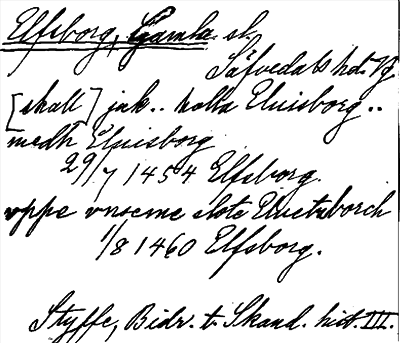 Elfsborg, Gamla sl.
Säfvedals hd. Vg
[skall] jak.. halla Eluisborg..
medh Eluisborg
29/7 1454 Elfsborg.
vppe vnseme slote Eluetzborch
1/8 1460 Elfsborg.
Styffe, Bidr. t. Skand. hist. III.